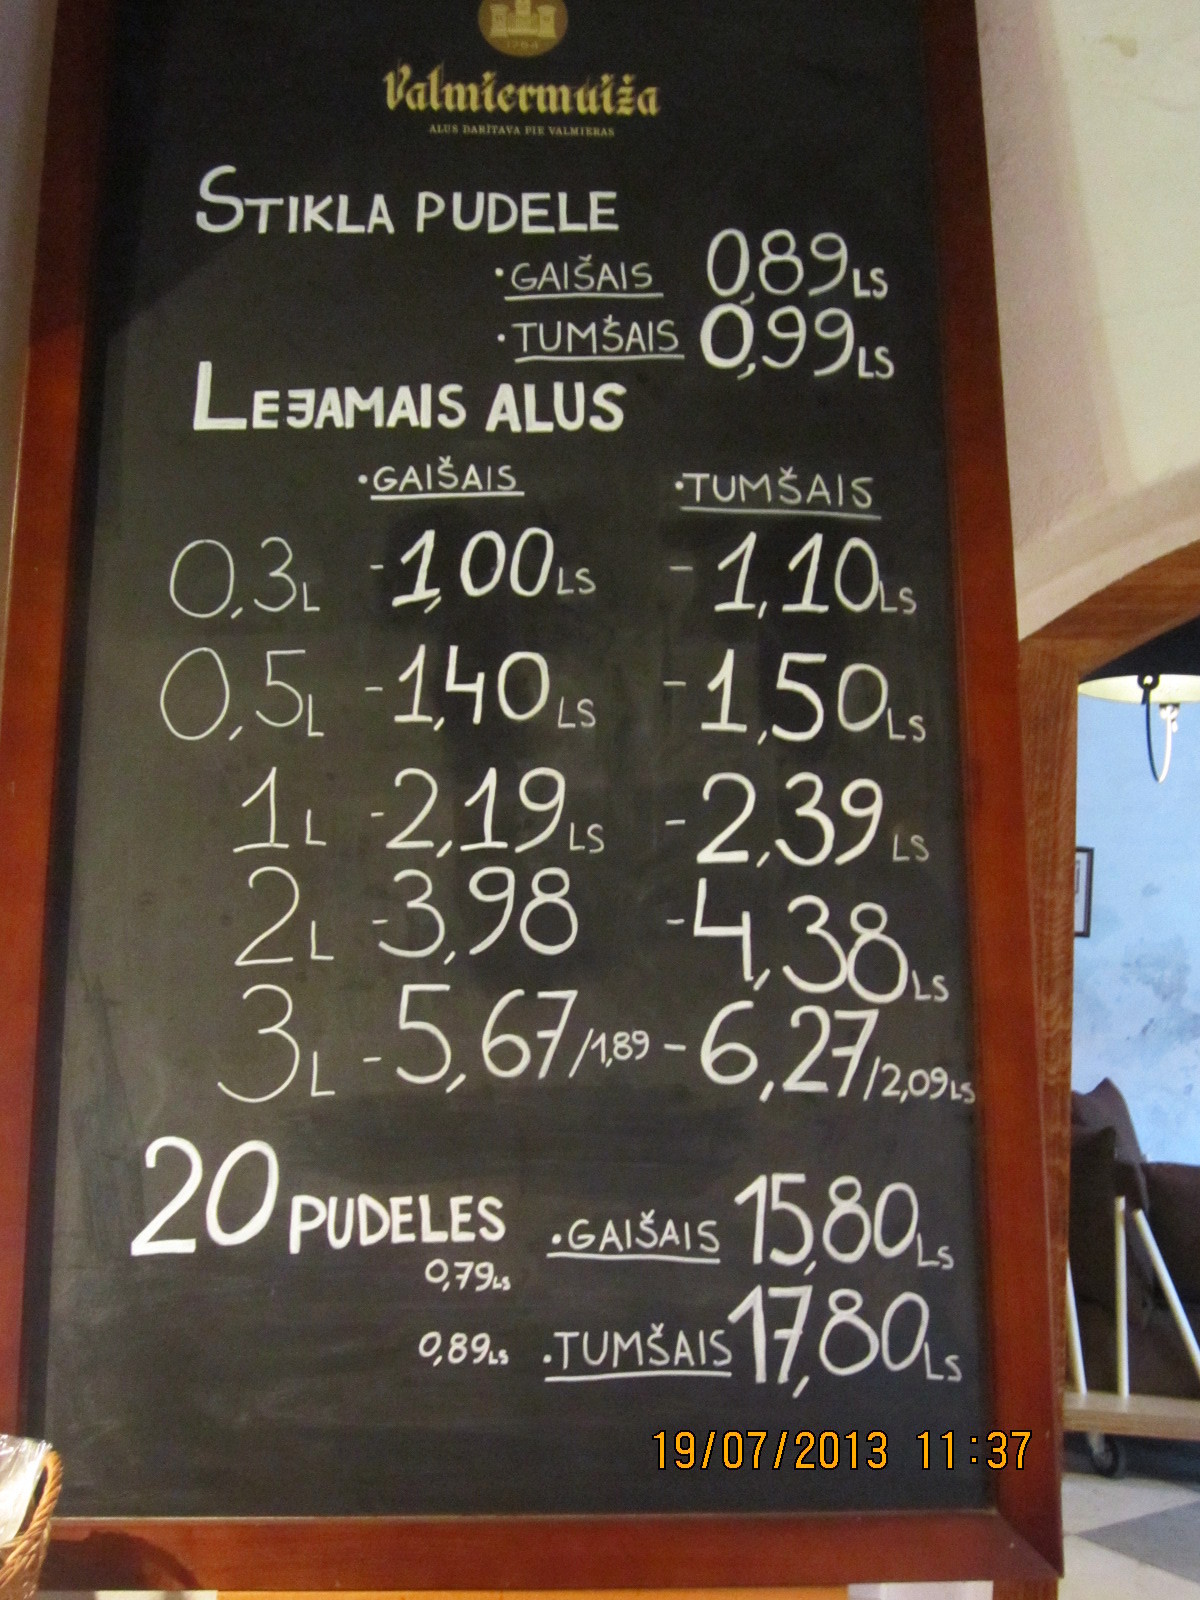 1764
Valmiermuiža
ALUS DARĪTAVA PIE VALMIERAS
STIKLA PUDELE
·GAIŠAIS 0,89LS
·TUMŠAIS 0,99LS
LEJAMAIS ALUS
·GAIŠAIS ·TUMŠAIS
0,3L -1,00LS -1,10LS
0,5L -1,40LS -1,50LS
1L -2,19LS -2,39LS
2L -3,98 -4,38LS
3L -5,67/1,89 -6,27/2,09LS
20 PUDELES ·GAIŠAIS 15,80LS
0,79LS
0,89LS ·TUMŠAIS 17,80LS
19/07/2013 11:37